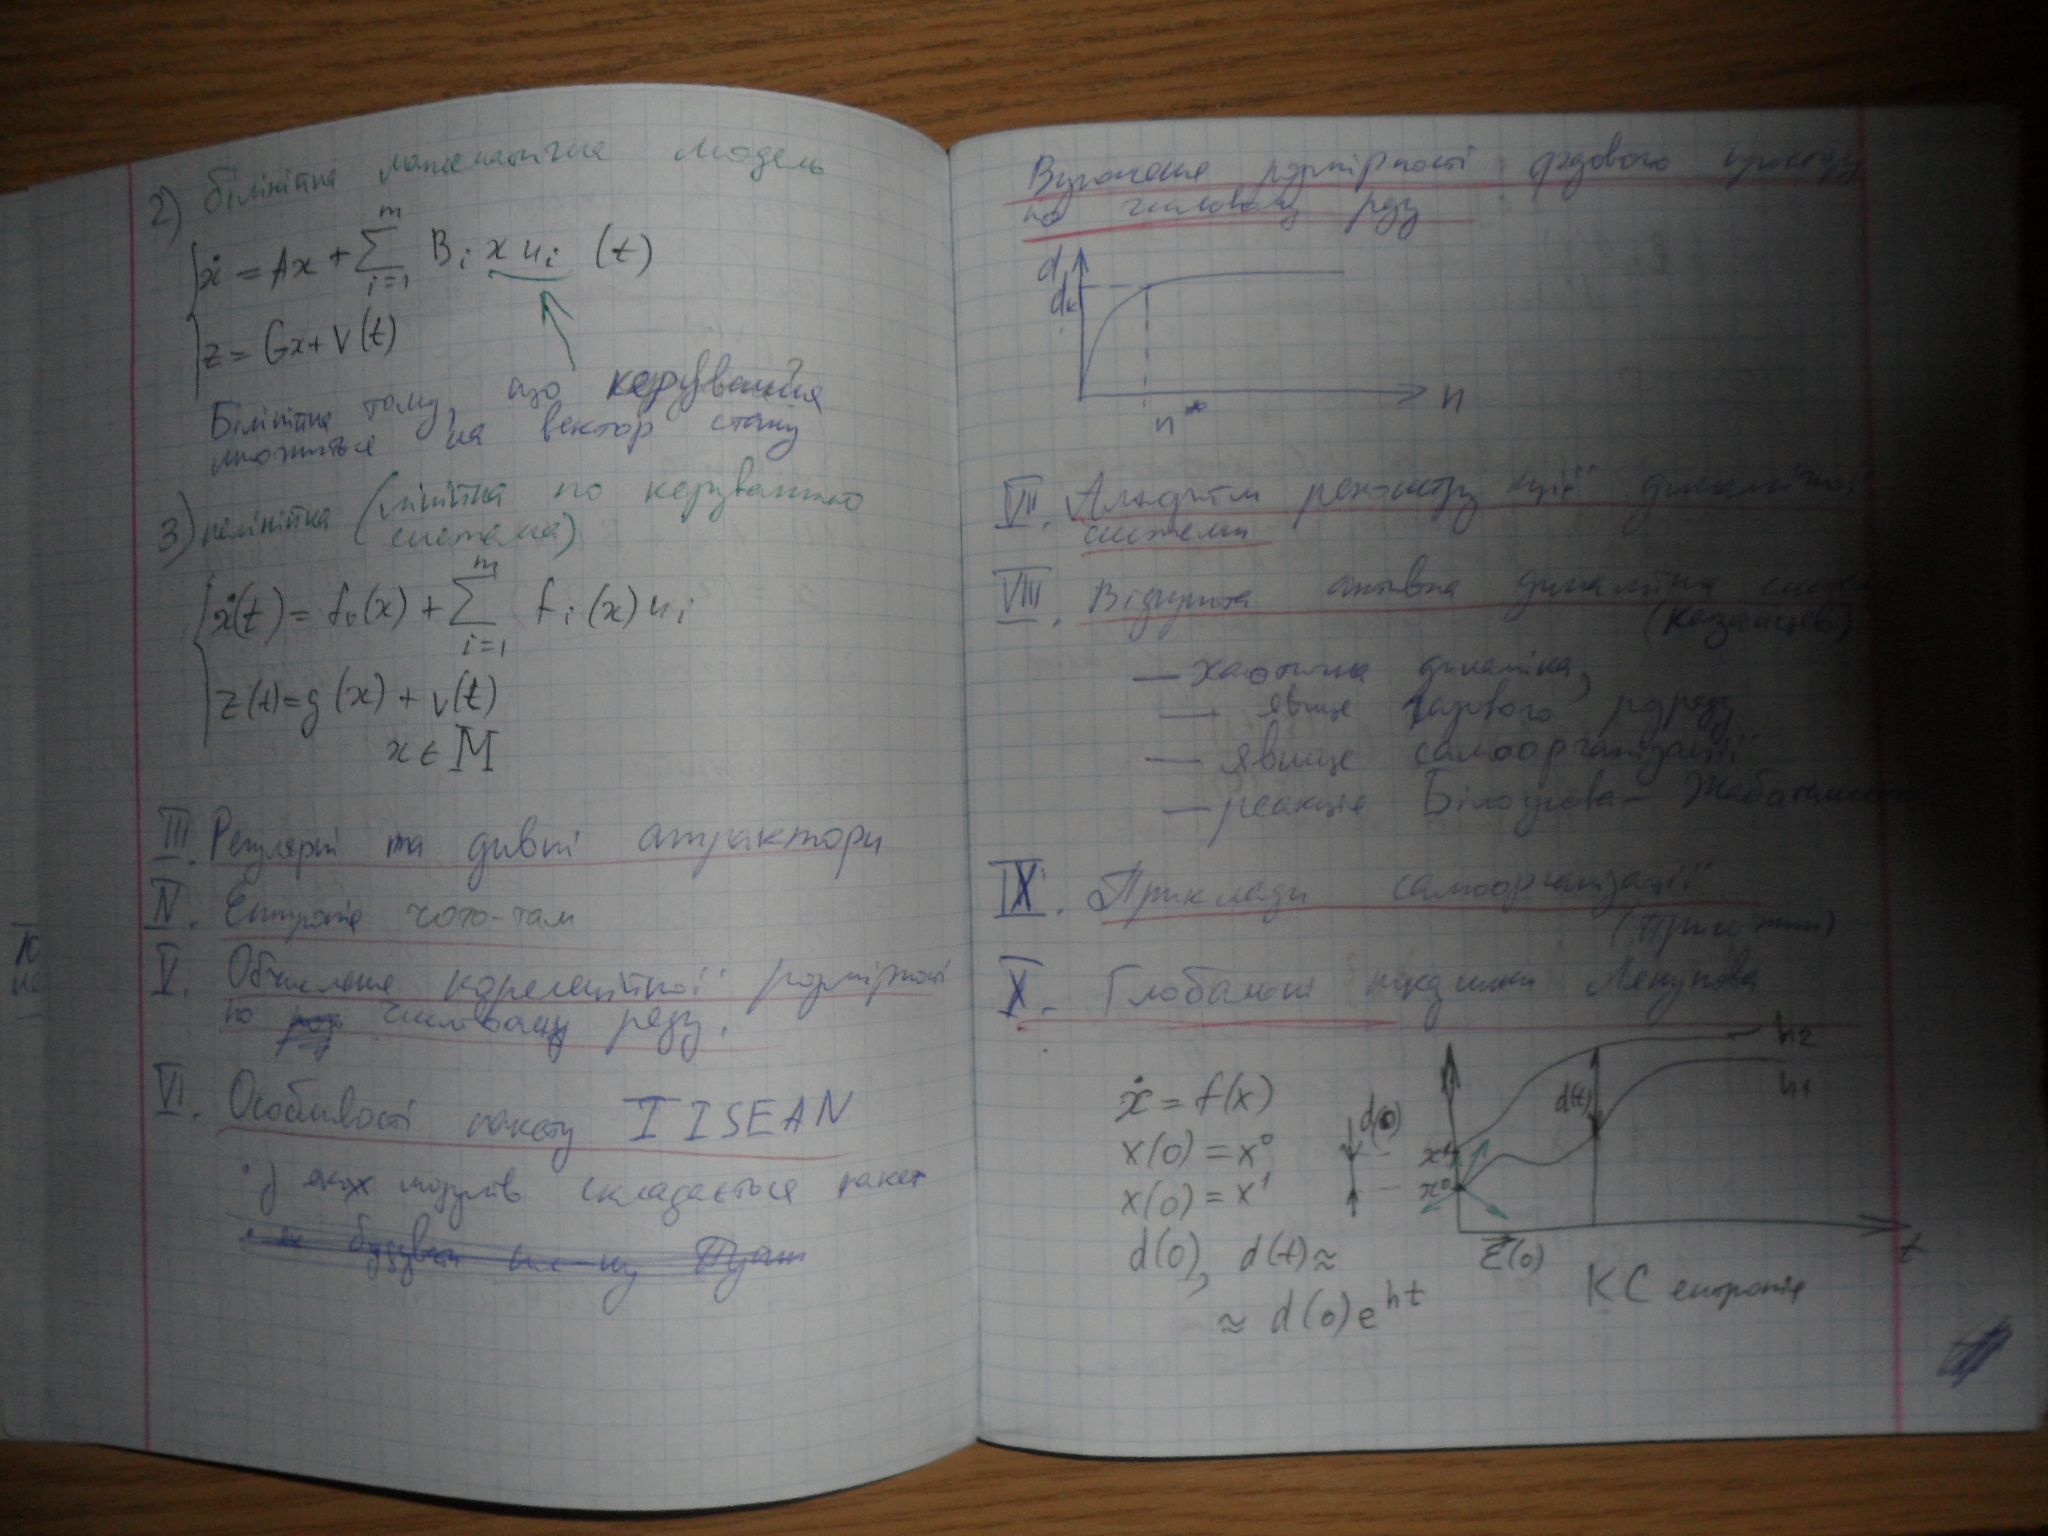 2) білінійна математична модель
ẋ = Ax + ∑ᵢ₌₁ᵐ Bᵢ x uᵢ (t)
z = Gx + V(t)
Білінійна тому, що керування
множиться на вектор стану
3) нелінійна (лінійна по керуванню
система)
ẋ(t) = f₀(x) + ∑ᵢ₌₁ᵐ fᵢ(x)uᵢ
z(t) = g(x) + v(t)
x ∈ M
III. Регулярні та дивні атрактори
IV. Ентропія чото-там
V. Обчислення кореляційної розмірності
по числовому ряду.
VI. Особливості пакету TISEAN
· З яких модулів складається пакет
Визначення розмірності фазового простору
по числовому ряду
d
dk
n*
n
VII. Алгоритм реконструкції динамічної
системи
VIII. Відкрита активна динамічна
(Казанцев)
— хаотична динаміка,
— явище газового розряду
— явище самоорганізації
— реакція Білоусова-
IX. Приклади самоорганізації
X. Глобальні показники Ляпунова
ẋ = f(x)
x(0) = x⁰
x(0) = x¹
d(0), d(t) ≈
≈ d(0)e^ht
d(0)
x¹
x⁰
d(t)
h2
h1
ε(0)
t
КС ентропія